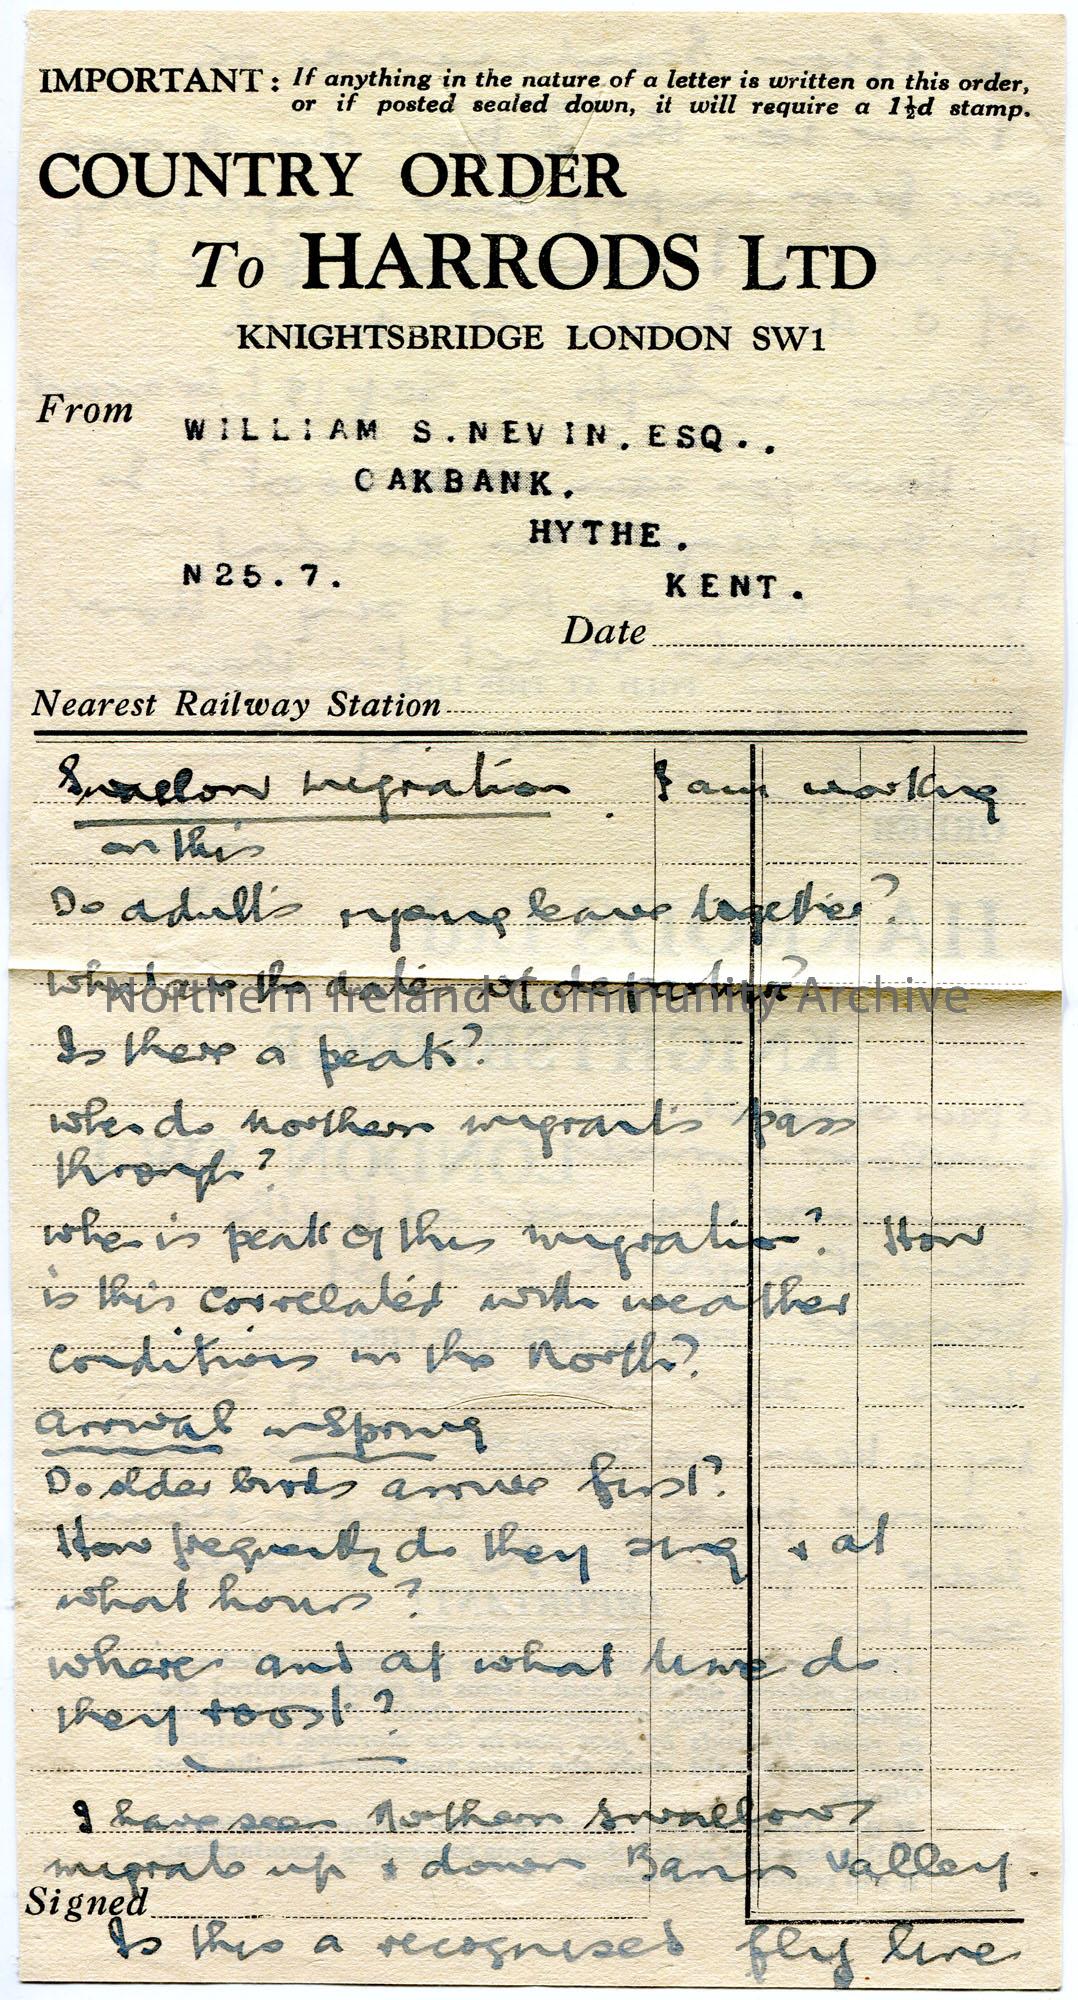 IMPORTANT: If anything in the nature of a letter is written on this order,
or if posted sealed down, it will require a 1½d stamp.
COUNTRY ORDER
To HARRODS LTD
KNIGHTSBRIDGE LONDON SW1
From
WILLIAM S.NEVIN. ESQ..
OAKBANK.
HYTHE.
N25.7.
KENT.
Date
Nearest Railway Station
Swallow migration. I am working
on this
Do adults & young leave together?
What are the dates of departure?
Northern Ireland Community Archive
Is there a peak?
when do northern migrants pass
through?
when is peak of this migration? How
is this correlated with weather
conditions in the North?
Arrival in Spring
Do older birds arrive first?
How frequently do they sing & at
what hours?
where and at what time do
they roost?
I have seen Northern Swallows
migrate up & down Bann Valley.
Signed
Is this a recognised fly line